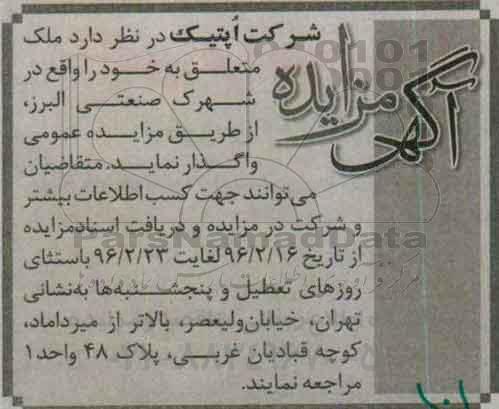 آگهی مزایده
شرکت اُپتیک در نظر دارد ملک
متعلق به خود را واقع در
شهرک صنعتی البرز،
از طریق مزایده عمومی
واگذار نماید. متقاضیان
می‌توانند جهت کسب اطلاعات بیشتر
و شرکت در مزایده و دریافت اسناد مزایده
از تاریخ ۹۶/۲/۱۶ لغایت ۹۶/۲/۲۳ باستثای
روزهای تعطیل و پنجشنبه‌ها به‌نشانی
تهران، خیابان ولیعصر، بالاتر از میرداماد،
کوچه قبادیان غربی، پلاک ۴۸ واحد ۱
مراجعه نمایند.
ParsNamadData
۱۰۱